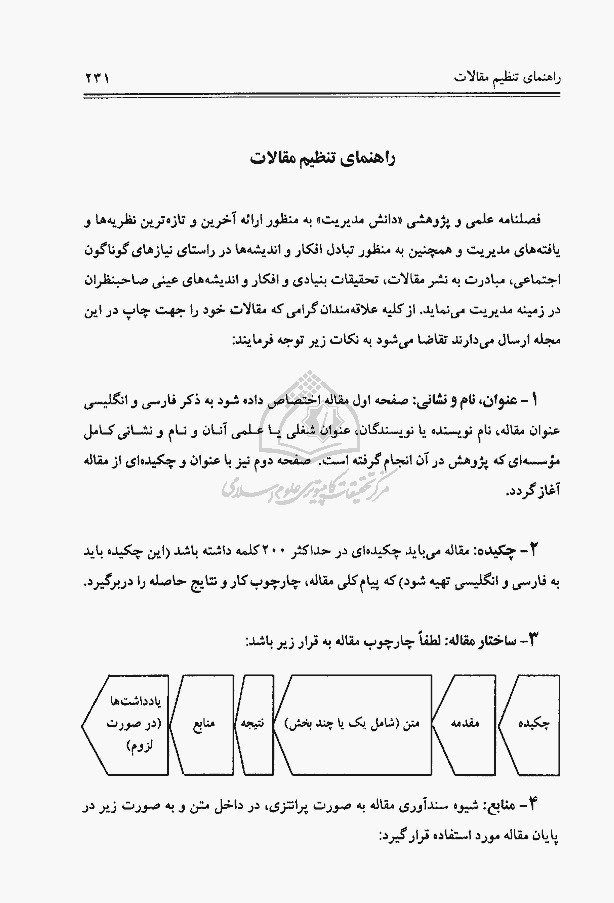 راهنمای تنظیم مقالات ۲۳۱
راهنمای تنظیم مقالات
فصلنامه علمی و پژوهشی «دانش مدیریت» به منظور ارائه آخرین و تازه‌ترین نظریه‌ها و
یافته‌های مدیریت و همچنین به منظور تبادل افکار و اندیشه‌ها در راستای نیازهای گوناگون
اجتماعی، مبادرت به نشر مقالات، تحقیقات بنیادی و افکار و اندیشه‌های عینی صاحبنظران
در زمینه مدیریت می‌نماید. از کلیه علاقه‌مندان گرامی که مقالات خود را جهت چاپ در این
مجله ارسال می‌دارند تقاضا می‌شود به نکات زیر توجه فرمایند:
۱- عنوان، نام و نشانی: صفحه اول مقاله اختصاص داده شود به ذکر فارسی و انگلیسی
عنوان مقاله، نام نویسنده یا نویسندگان، عنوان شغلی یا علمی آنان و نام و نشانی کامل
مؤسسه‌ای که پژوهش در آن انجام گرفته است. صفحه دوم نیز با عنوان و چکیده‌ای از مقاله
آغاز گردد.
مرکز تحقیقات کامپیوتری علوم اسلامی
۲- چکیده: مقاله می‌باید چکیده‌ای در حداکثر ۲۰۰ کلمه داشته باشد (این چکیده باید
به فارسی و انگلیسی تهیه شود) که پیام کلی مقاله، چارچوب کار و نتایج حاصله را دربرگیرد.
۳- ساختار مقاله: لطفاً چارچوب مقاله به قرار زیر باشد:
چکیده
مقدمه
متن (شامل یک یا چند بخش)
نتیجه
منابع
یادداشت‌ها
(در صورت
لزوم)
۴- منابع: شیوه سندآوری مقاله به صورت پرانتزی، در داخل متن و به صورت زیر در
پایان مقاله مورد استفاده قرار گیرد: